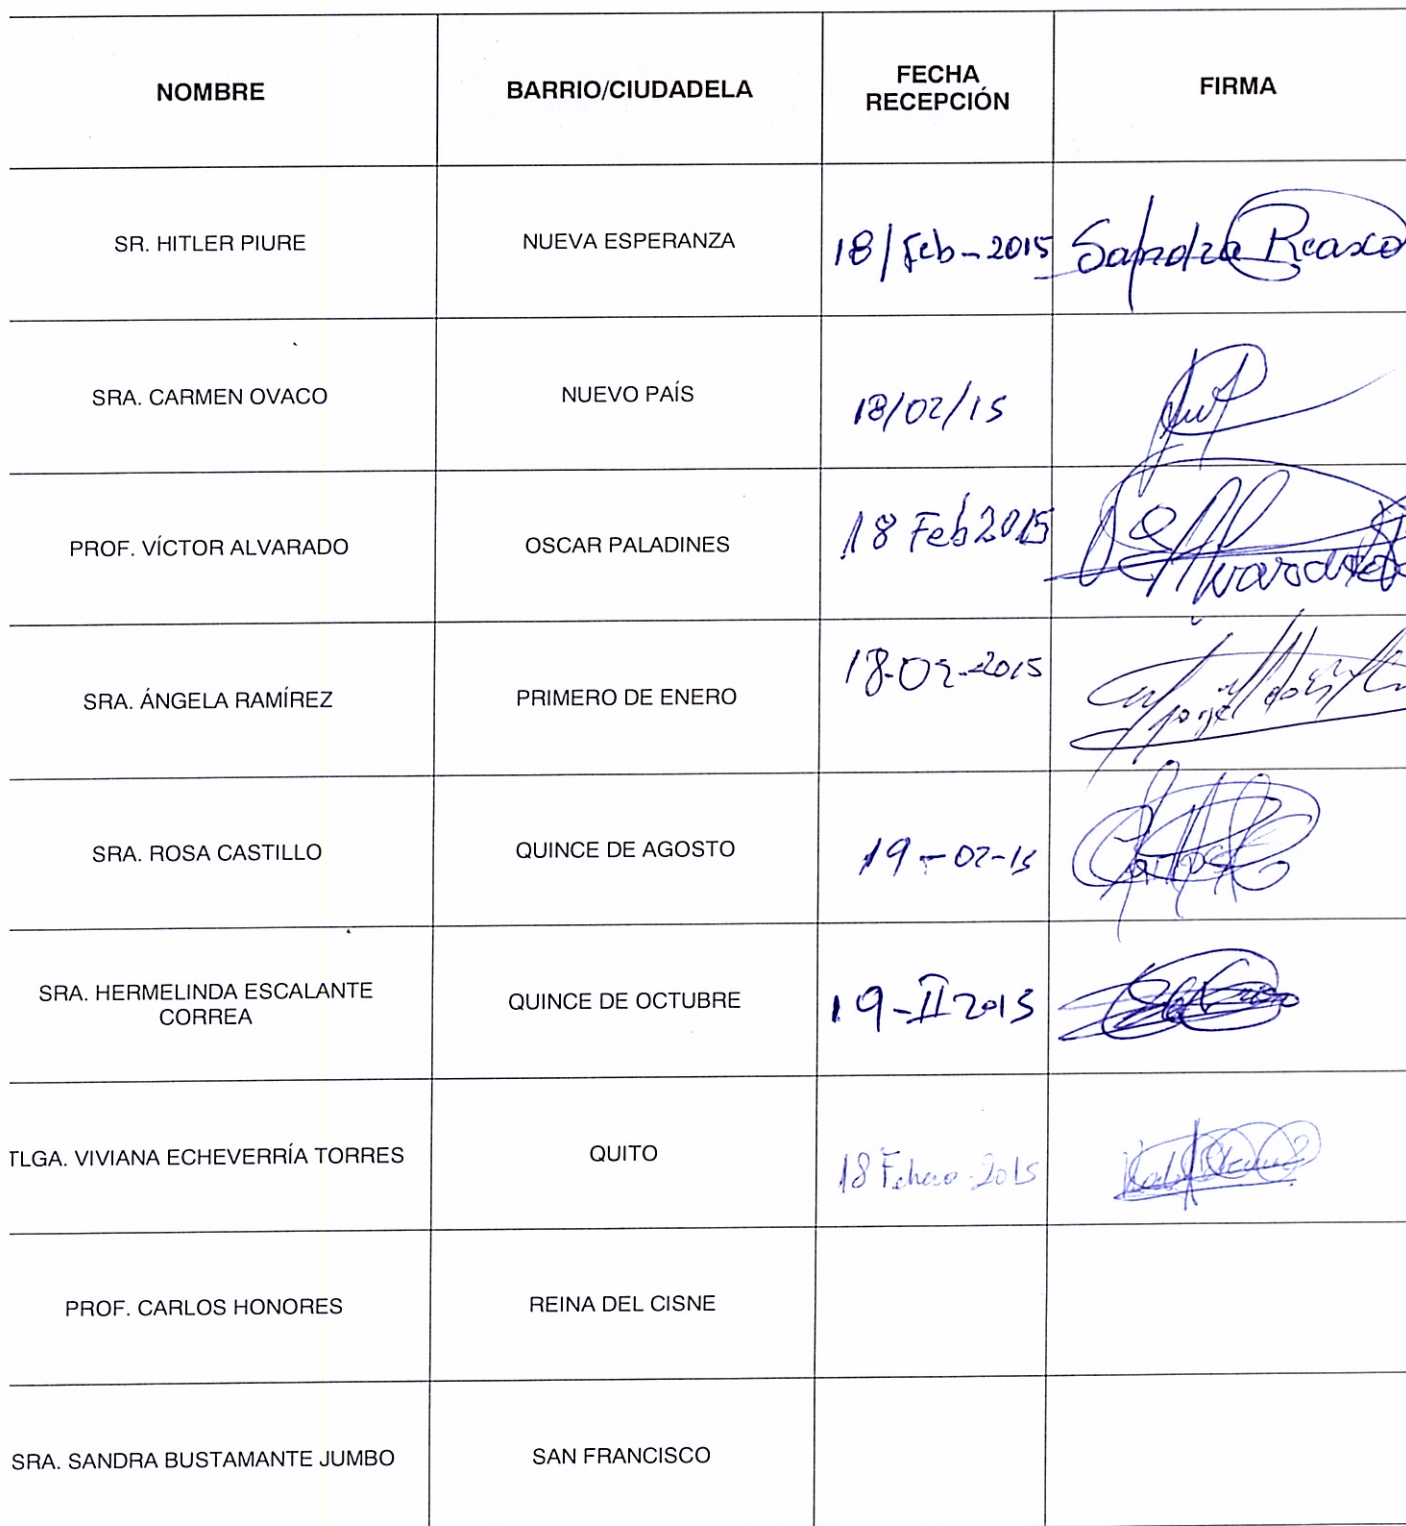 NOMBRE BARRIO/CIUDADELA FECHA RECEPCIÓN FIRMA
SR. HITLER PIURE NUEVA ESPERANZA 18/Feb-2015 Sandra Reasco
SRA. CARMEN OVACO NUEVO PAÍS 18/02/15
PROF. VÍCTOR ALVARADO OSCAR PALADINES 18 Feb 2015
SRA. ÁNGELA RAMÍREZ PRIMERO DE ENERO 18-02-2015
SRA. ROSA CASTILLO QUINCE DE AGOSTO 19-02-15
SRA. HERMELINDA ESCALANTE
CORREA QUINCE DE OCTUBRE 19-II 2015
TLGA. VIVIANA ECHEVERRÍA TORRES QUITO 18 Febrero-2015
PROF. CARLOS HONORES REINA DEL CISNE
SRA. SANDRA BUSTAMANTE JUMBO SAN FRANCISCO